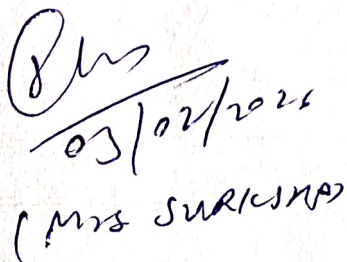 03/02/2026
(Mrs SURKSHA)